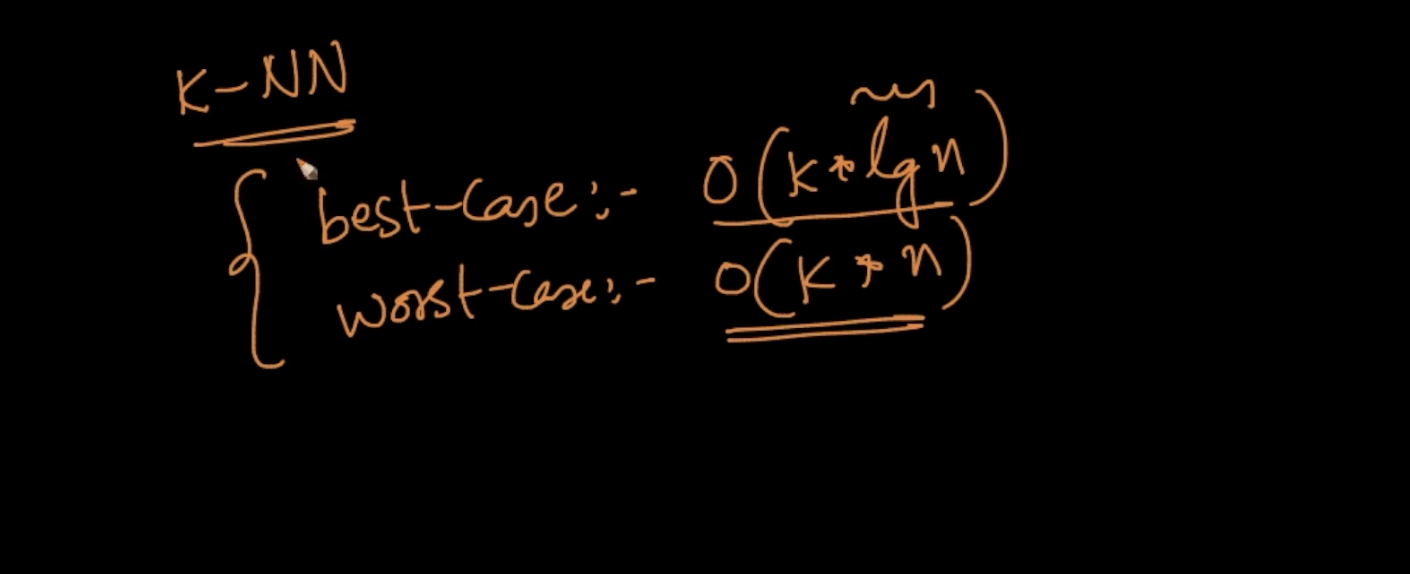 K-NN
best-case:- O(k*lgn)
worst-case:- O(k*n)